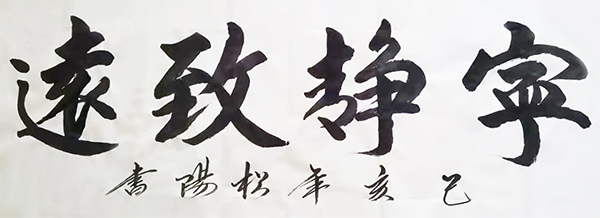 寧靜致遠
己亥年松陽書